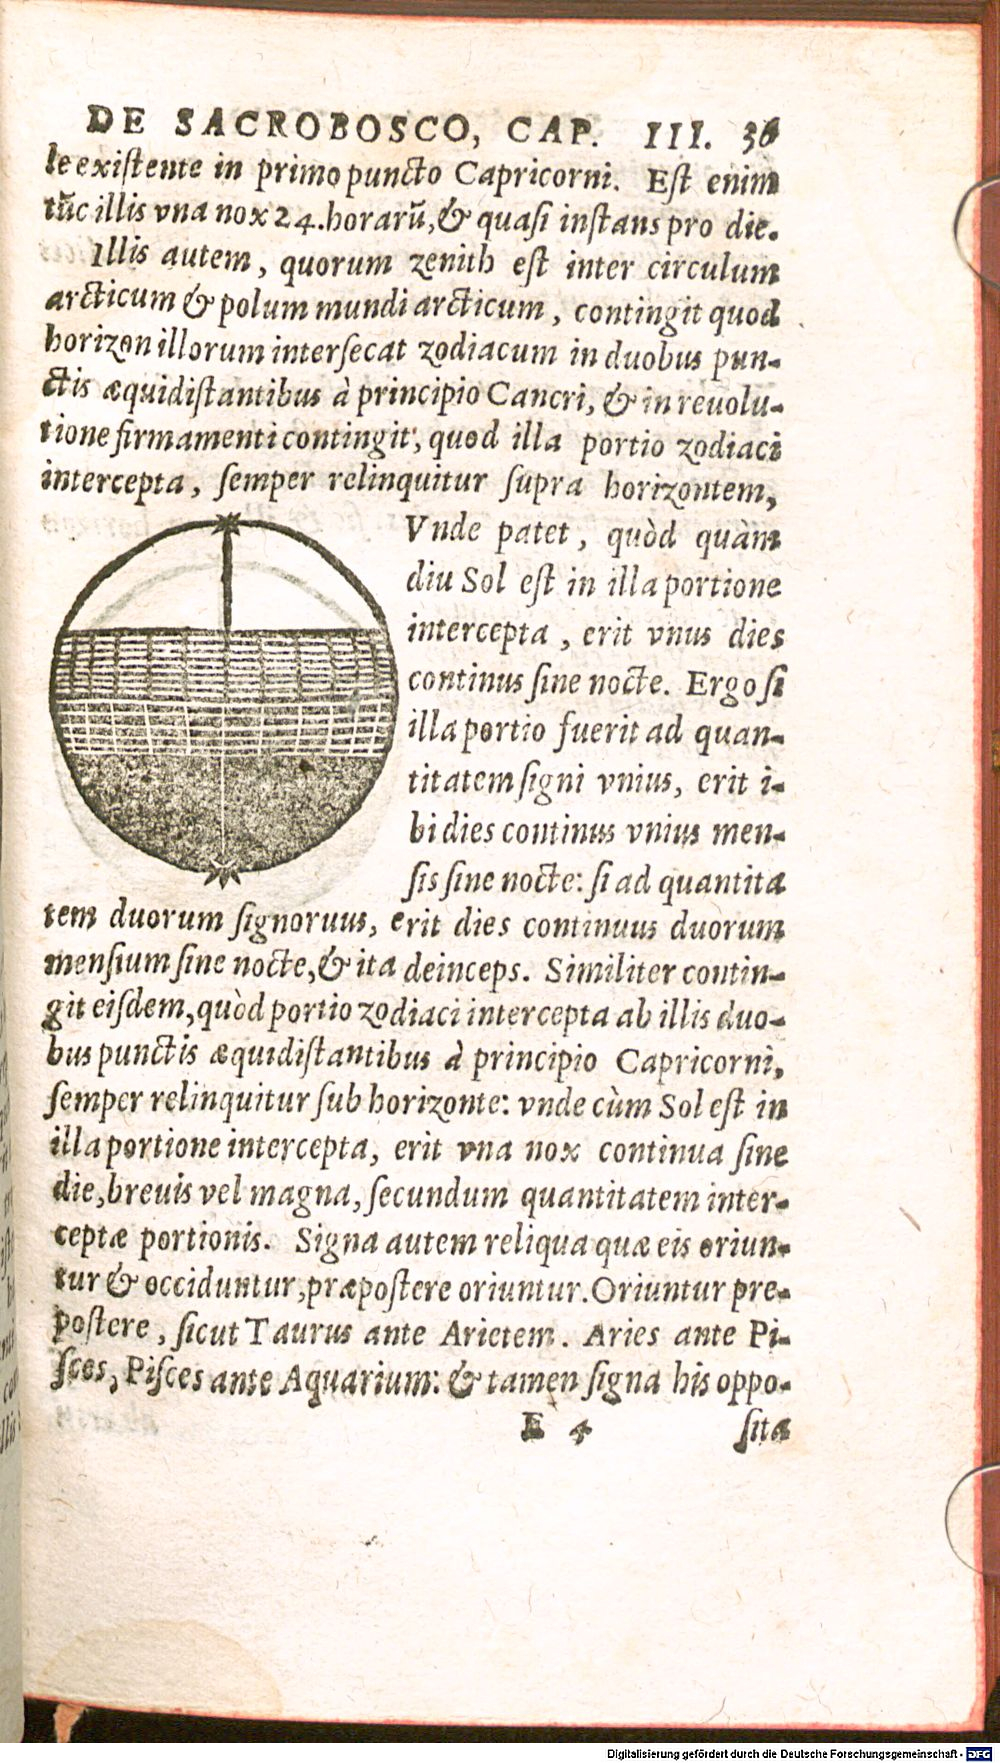 DE SACROBOSCO, CAP. III. 36
le exiſtente in primo puncto Capricorni. Eſt enim
tūc illis vna nox 24. horarū, & quaſi inſtans pro die.
Illis autem, quorum zenith eſt inter circulum
arcticum & polum mundi arcticum, contingit quod
horizon illorum interſecat zodiacum in duobus pun-
ctis æquidiſtantibus à principio Cancri, & in reuolu-
tione firmamenti contingit, quod illa portio zodiaci
intercepta, ſemper relinquitur ſupra horizontem,
Vnde patet, quòd quàm
diu Sol eſt in illa portione
intercepta, erit vnus dies
continus ſine nocte. Ergo ſi
illa portio fuerit ad quan-
titatem ſigni vnius, erit i-
bi dies continus vnius men-
ſis ſine nocte: ſi ad quantita
tem duorum ſignoruus, erit dies continuus duorum
menſium ſine nocte, & ita deinceps. Similiter contin-
git eiſdem, quòd portio zodiaci intercepta ab illis duo-
bus punctis æquidiſtantibus à principio Capricorni,
ſemper relinquitur ſub horizonte: vnde cùm Sol eſt in
illa portione intercepta, erit vna nox continua ſine
die, breuis vel magna, ſecundum quantitatem inter-
ceptæ portionis. Signa autem reliqua quæ eis oriun-
tur & occiduntur, præpoſtere oriuntur. Oriuntur pre-
poſtere, ſicut Taurus ante Arietem. Aries ante Pi-
ſces, Piſces ante Aquarium: & tamen ſigna his oppo-
E 4 ſita
Digitalisierung gefördert durch die Deutsche Forschungsgemeinschaft - DFG